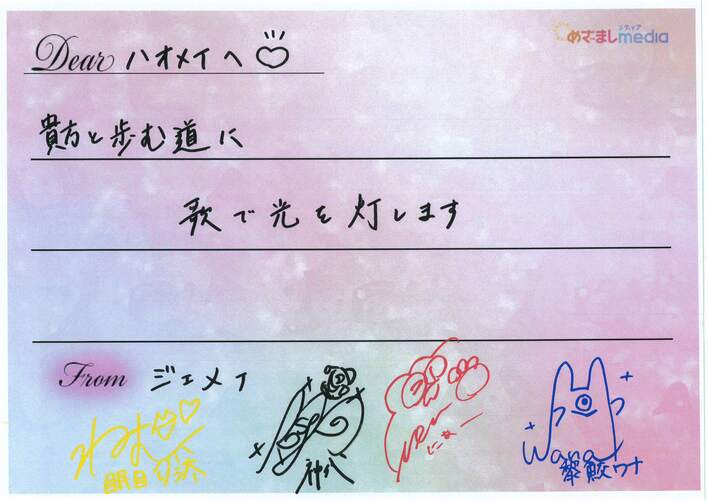 めざましmedia
メディア
Dear ハオメイへ
貴方と歩む道に
歌で光を灯します
From ジェメイ
神八
wana